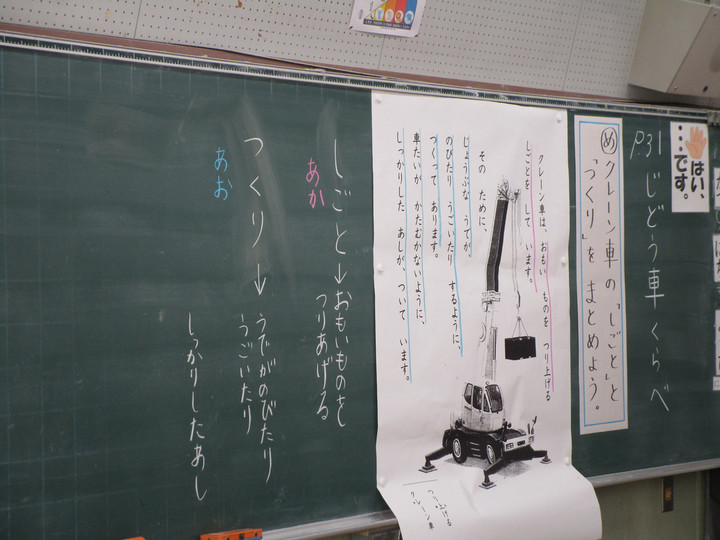 はい、
…です。
P.31 じどう車くらべ
め クレーン車の「しごと」と
「つくり」をまとめよう。
クレーン車は、おもい ものを つり上げる
しごとを して います。
その ために、
じょうぶな うでが、
のびたり うごいたり するように、
つくって あります。
車たいが かたむかないように、
しっかりした あしが、ついて います。
つり上げる
クレーン車
しごと→おもいものを
つりあげる
あか
つくり→うでがのびたり
うごいたり
あお
しっかりしたあし